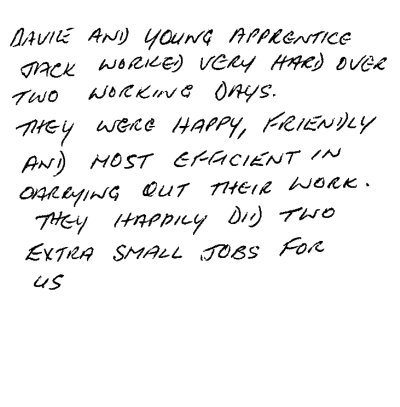 DAVIE AND YOUNG APPRENTICE
JACK WORKED VERY HARD OVER
TWO WORKING DAYS.
THEY WERE HAPPY, FRIENDLY
AND MOST EFFICIENT IN
CARRYING OUT THEIR WORK.
THEY HAPPILY DID TWO
EXTRA SMALL JOBS FOR
US